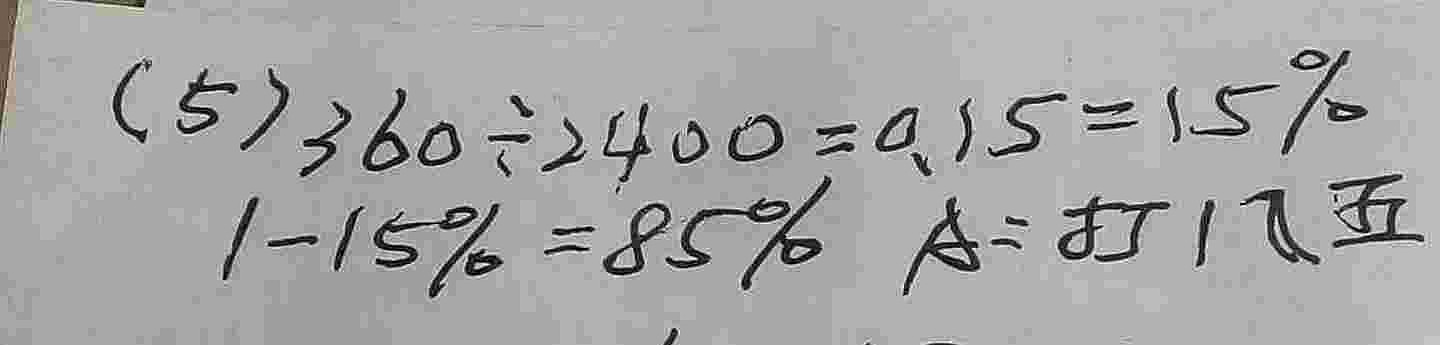 (5) 360÷2400=0.15=15%
1-15%=85% A=打八五